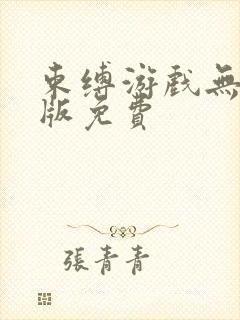 束缚游戏無
版免費
張青青